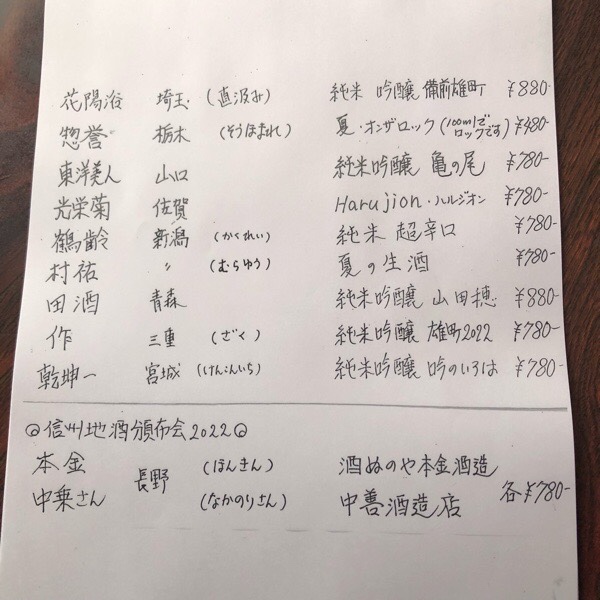 花陽浴 埼玉 (直汲み) 純米 吟醸 備前雄町 ¥880-
惣誉 栃木 (そうほまれ) 夏・オンザロック (100mlでロックです) ¥480-
東洋美人 山口 純米吟醸 亀の尾 ¥780-
光栄菊 佐賀 Harujion・ハルジオン ¥780-
鶴齢 新潟 (かくれい) 純米 超辛口 ¥780-
村祐 〃 (むらゆう) 夏の生酒 ¥780-
田酒 青森 純米吟醸 山田穂 ¥880-
作 三重 (ざく) 純米吟醸 雄町2022 ¥780-
乾坤一 宮城 (けんこんいち) 純米吟醸 吟のいろは ¥780-
信州地酒頒布会2022
本金 長野 (ほんきん) 酒ぬのや本金酒造 各¥780-
中乗さん (なかのりさん) 中善酒造店